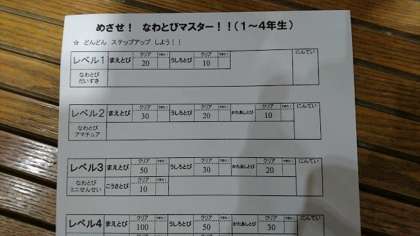 めざせ! なわとびマスター!!(1～4年生)
☆ どんどん ステップアップ しよう!!
レベル1 まえとび クリア 20 うしろとび クリア 10 にんてい
なわとび
だいすき
レベル2 まえとび クリア 30 うしろとび クリア 20 かたあしとび クリア 10 にんてい
なわとび
アマチュア
レベル3 まえとび クリア 50 うしろとび クリア 30 かたあしとび クリア 20 にんてい
なわとび
ミニせんせい こうさとび クリア 10
レベル4 まえとび クリア 100 うしろとび クリア 50 かたあしとび クリア 30 にんてい